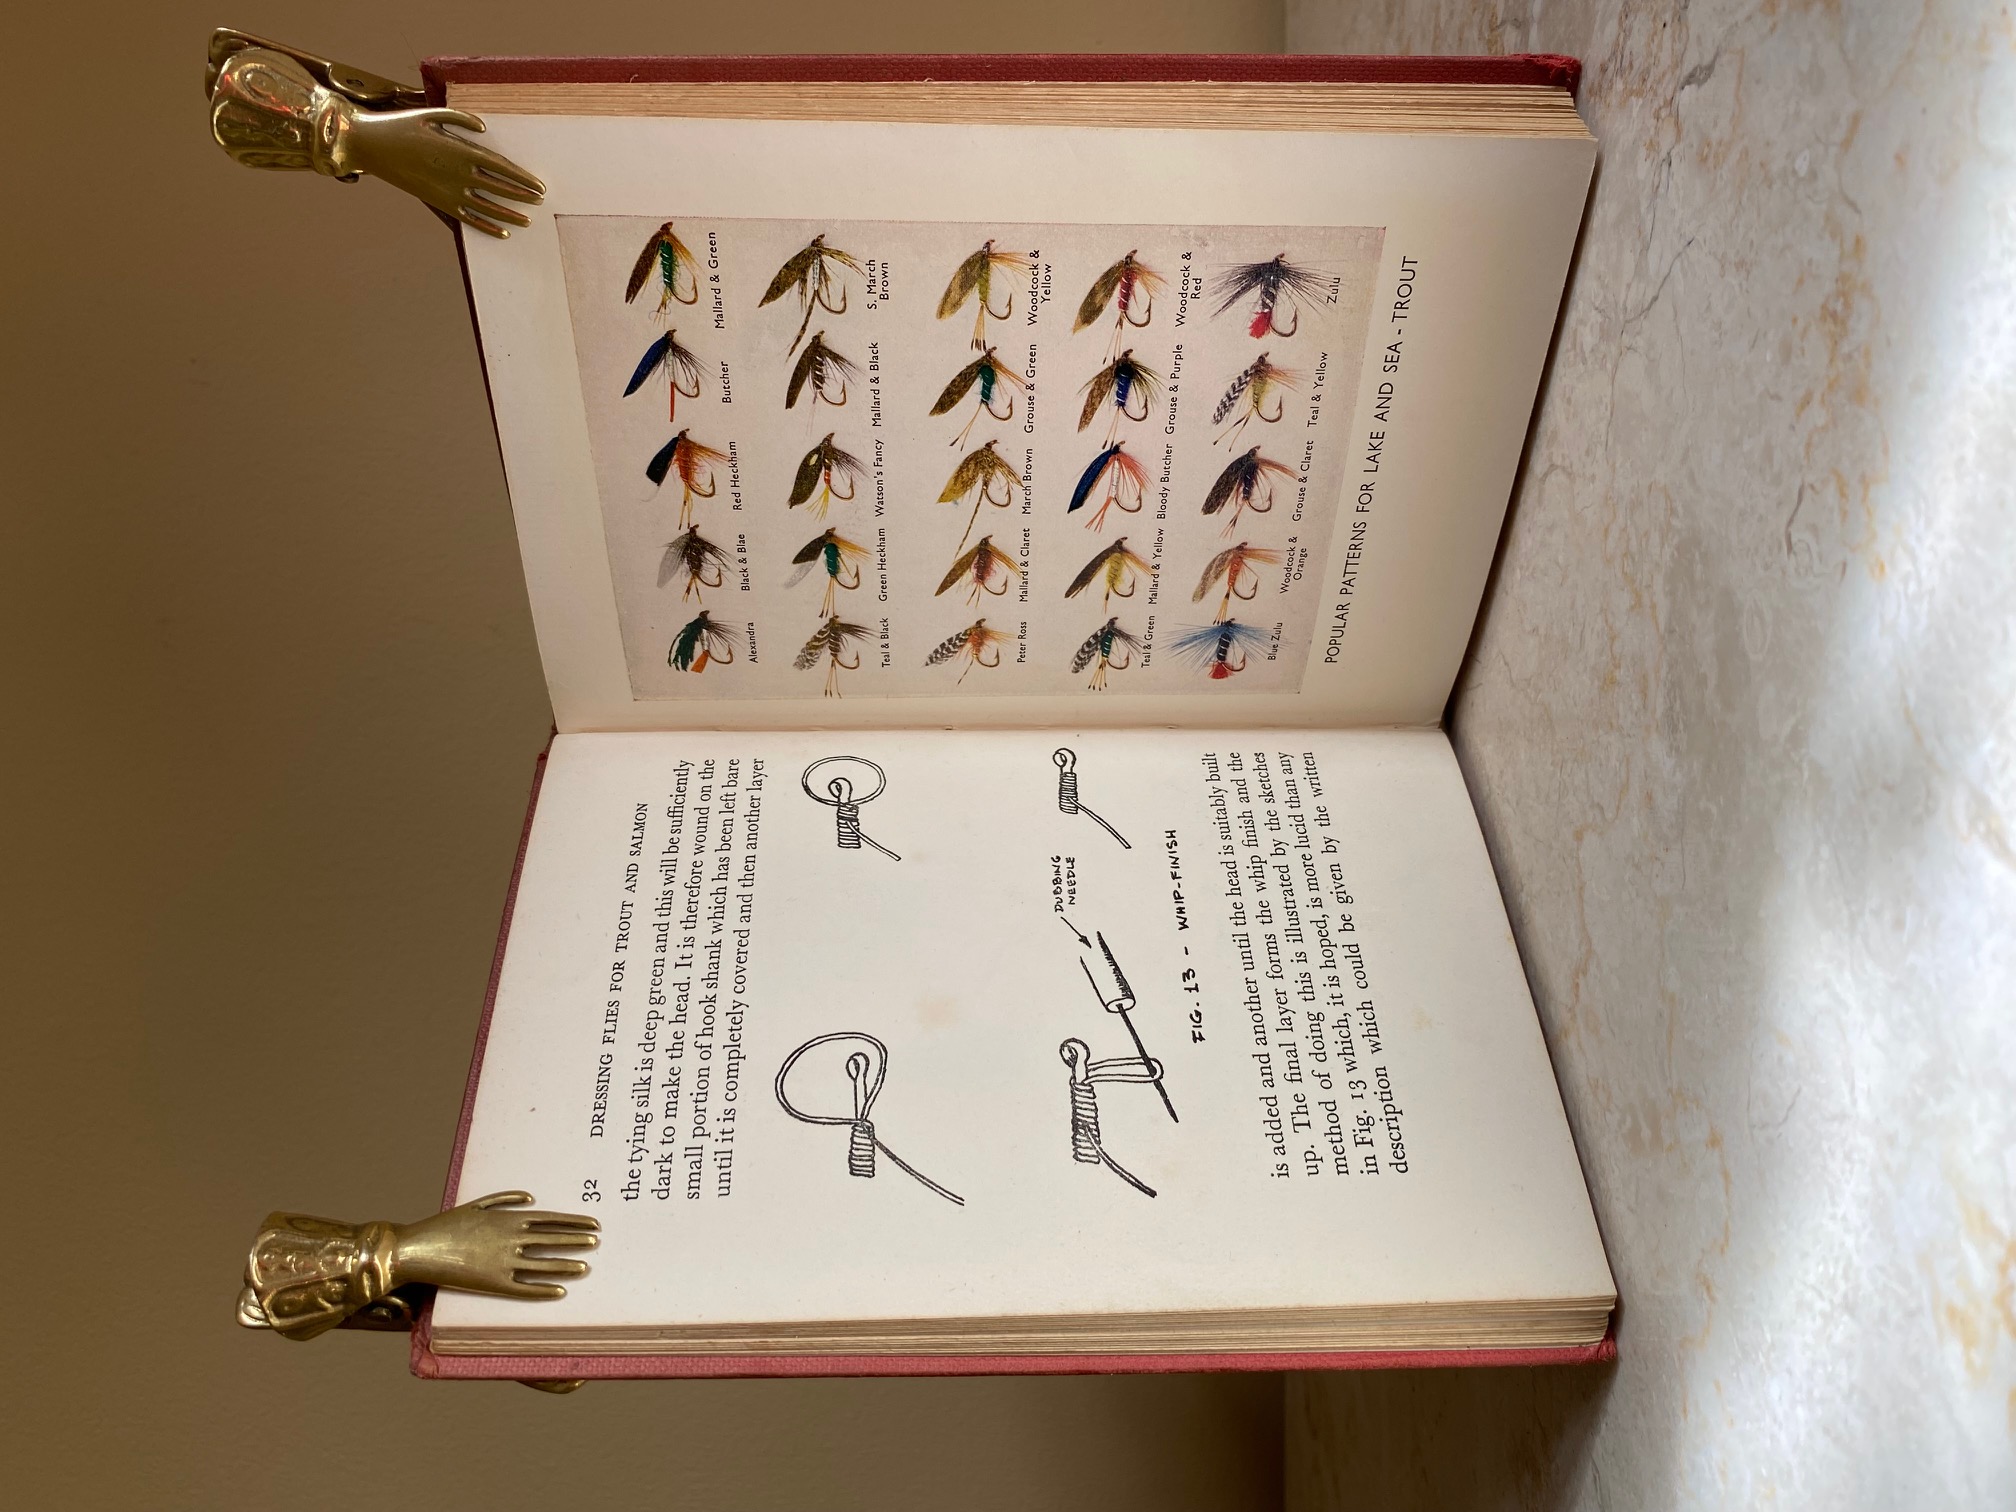 32 DRESSING FLIES FOR TROUT AND SALMON
the tying silk is deep green and this will be sufficiently
dark to make the head. It is therefore wound on the
small portion of hook shank which has been left bare
until it is completely covered and then another layer
DUBBING
NEEDLE
FIG. 13 - WHIP-FINISH
is added and another until the head is suitably built
up. The final layer forms the whip finish and the
method of doing this is illustrated by the sketches
in Fig. 13 which, it is hoped, is more lucid than any
description which could be given by the written
Alexandra Black & Blae Red Heckham Butcher Mallard & Green
Teal & Black Green Heckham Watson's Fancy Mallard & Black S. March
Brown
Peter Ross Mallard & Claret March Brown Grouse & Green Woodcock &
Yellow
Teal & Green Mallard & Yellow Bloody Butcher Grouse & Purple Woodcock &
Red
Blue Zulu Woodcock &
Orange Grouse & Claret Teal & Yellow Zulu
POPULAR PATTERNS FOR LAKE AND SEA - TROUT